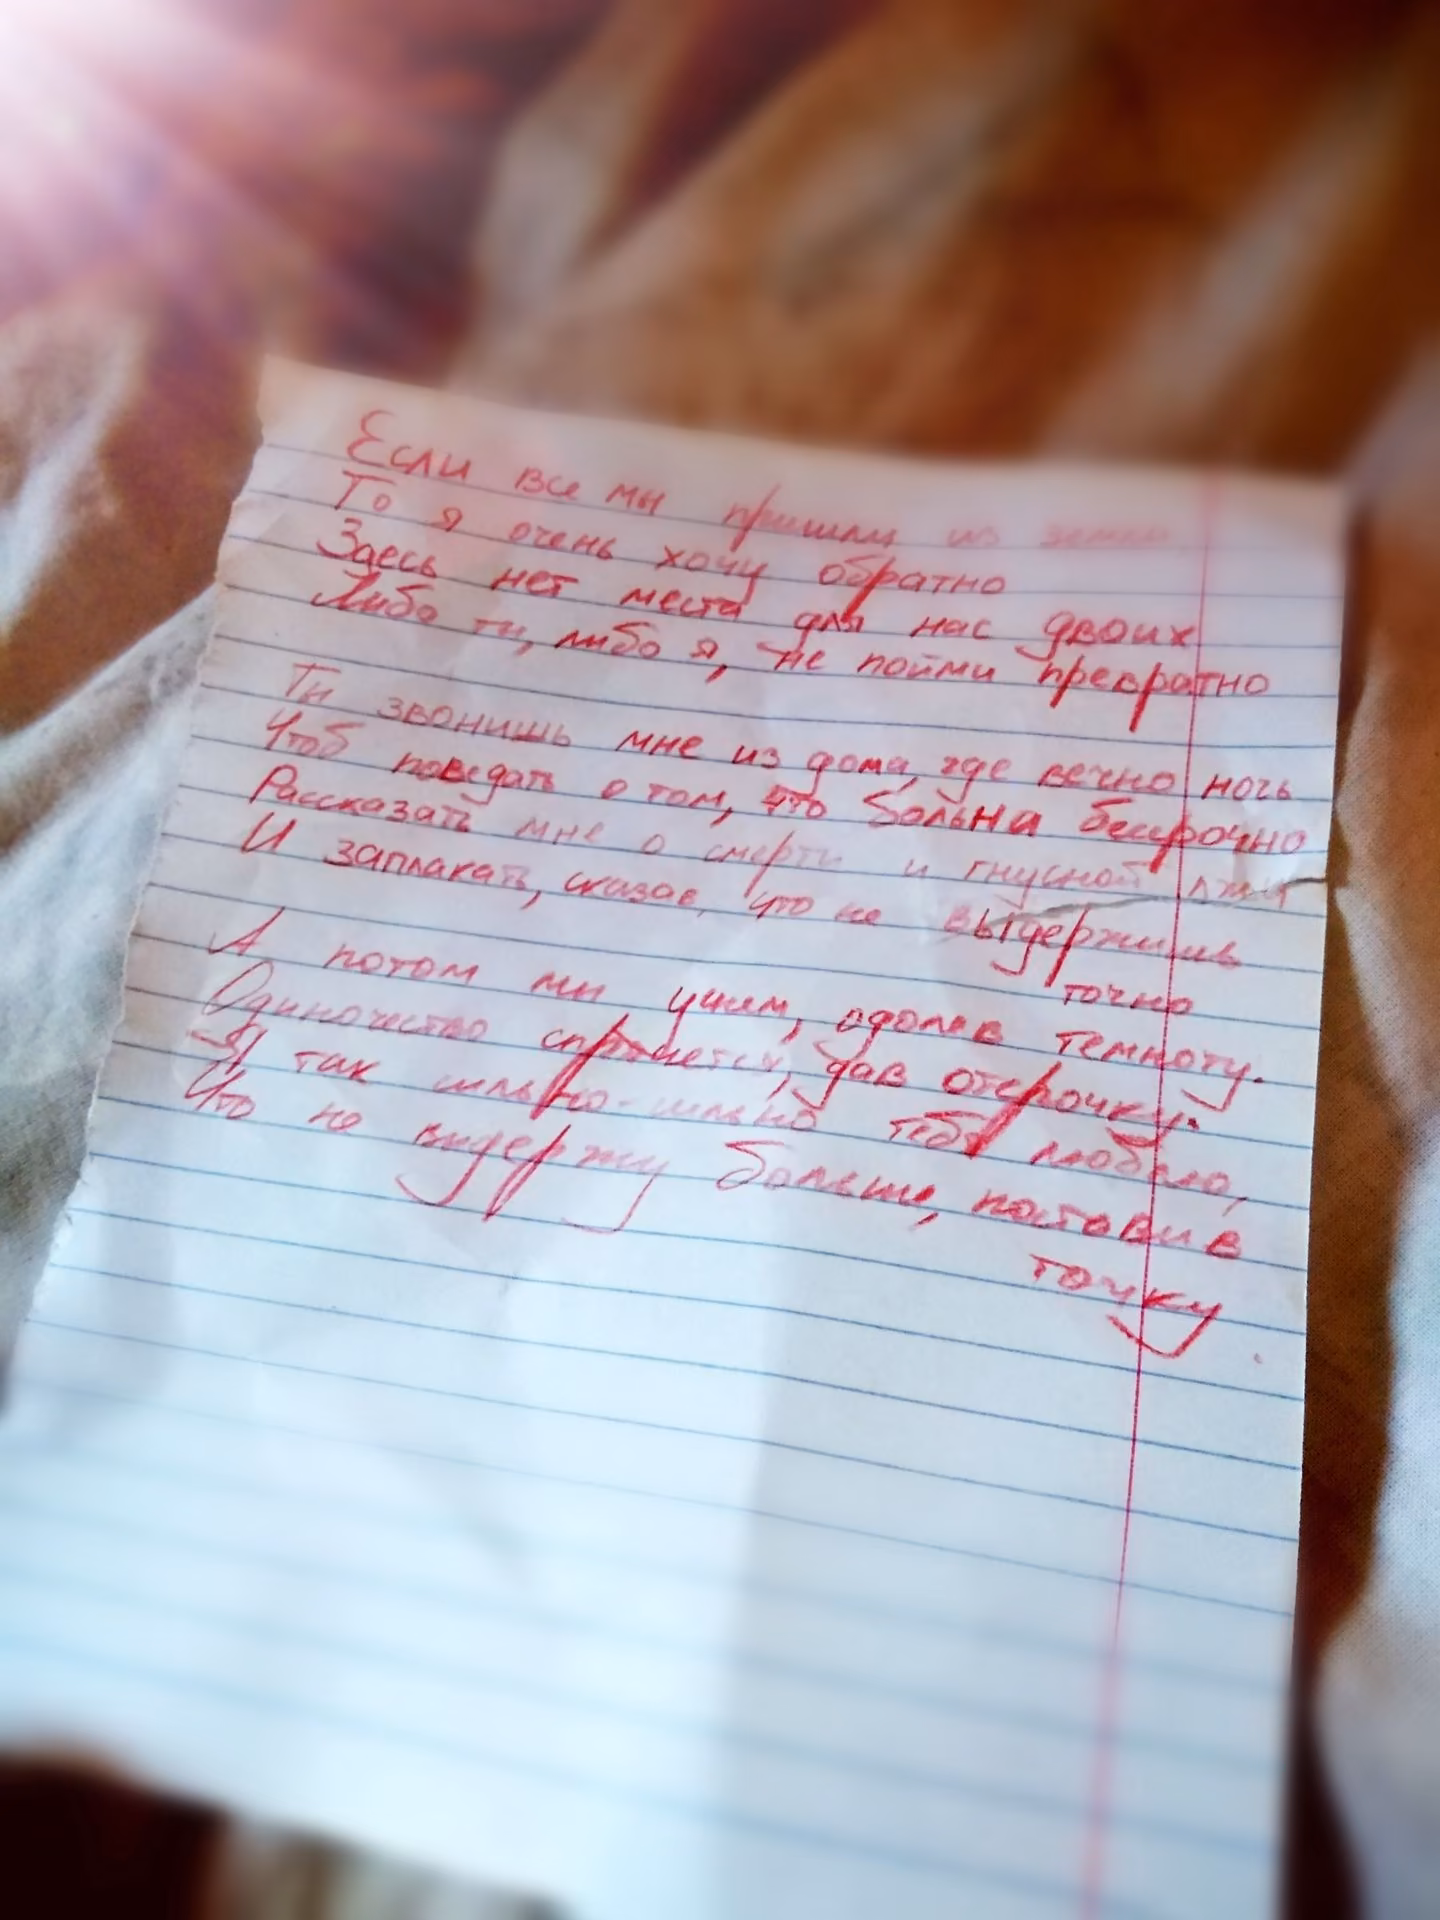 Если все мы пришли из земли
То я очень хочу обратно
Здесь нет места для нас двоих
Либо ты, либо я, не пойми превратно
Ты звонишь мне из дома, где вечно ночь
Чтоб поведать о том, что больна бессрочно
Рассказать мне о смерти и гнусной лжи
И заплакать, сказав, что не выдержишь
точно
А потом мы уйдем, одолев темноту.
Одиночество спрячется, дав отсрочку.
Я так сильно-сильно тебя люблю,
Что не выдержу больше, поставив
точку